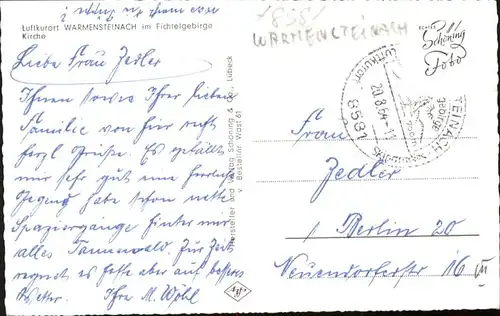 Luftkurort WARMENSTEINACH im Fichtelgebirge
Kirche
Liebe Frau Zedler
Ihnen sowie Ihrer lieben
Familie von hier recht
herzl. Grüße. Es gefällt
mir sehr gut eine herrliche
Gegend habe schon nette
Spaziergänge hinter mir
alles Tannenwald. Zur Zeit
regnet es hoffe aber auf besseres
Wetter. Ihre M. Wöhl
Hersteller und Verlag Schöning & Co., Lübeck
Bestellnr. Wast 61
1858
WARMENSTEINACH
ECHTE
Schöning
Foto
LUFTKURORT
20.8.64
8581
Frau
Zedler
1 Berlin 20
Neuendorferstr 16 III